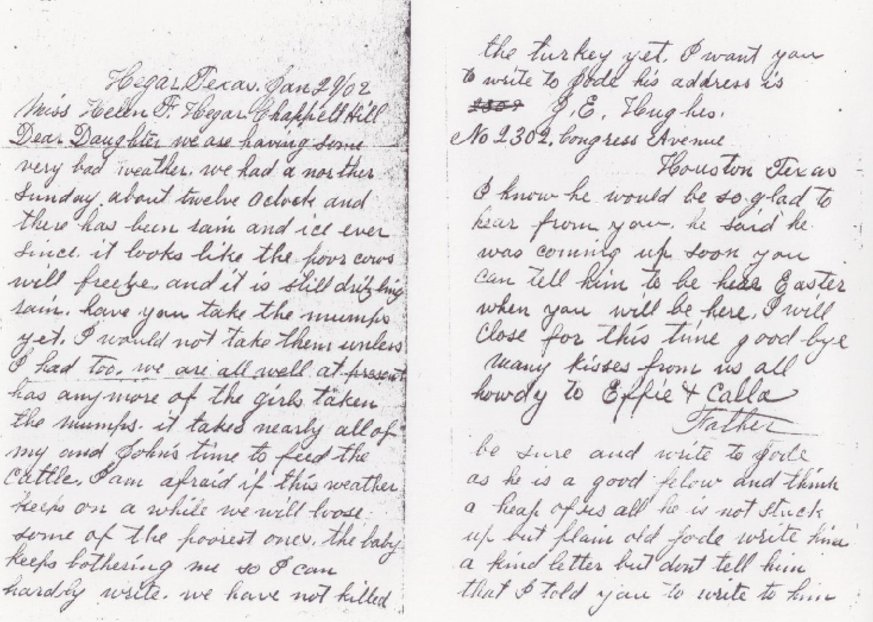 Hegar, Texas. Jan 29/02
Miss Helen F. Hegar. Chappell Hill
Dear Daughter we are having some
very bad weather. we had a norther
Sunday. about twelve oclock and
there has been rain and ice ever
since. it looks like the poor cows
will freeze. and it is still drizling
rain. have you take the mumps
yet. I would not take them unless
I had too. we are all well at present
has anymore of the girls taken
the mumps. it takes nearly all of
my and John's time to feed the
cattle. I am afraid if this weather
keeps on a while we will loose
some of the poorest ones. the baby
keeps bothering me so I can
hardly write. we have not killed
the turkey yet. I want you
to write to Jode his address is
J. E. Hughes.
No 2302. Congress Avenue
Houston Texas
I know he would be so glad to
hear from you. he said he
was coming up soon you
can tell him to be here Easter
when you will be here. I will
close for this time good-bye
many kisses from us all
howdy to Effie & Calla
Father
be sure and write to Jode
as he is a good felow and think
a heap of us all he is not stuck
up but plain old Jode write him
a kind letter but dont tell him
that I told you to write to him